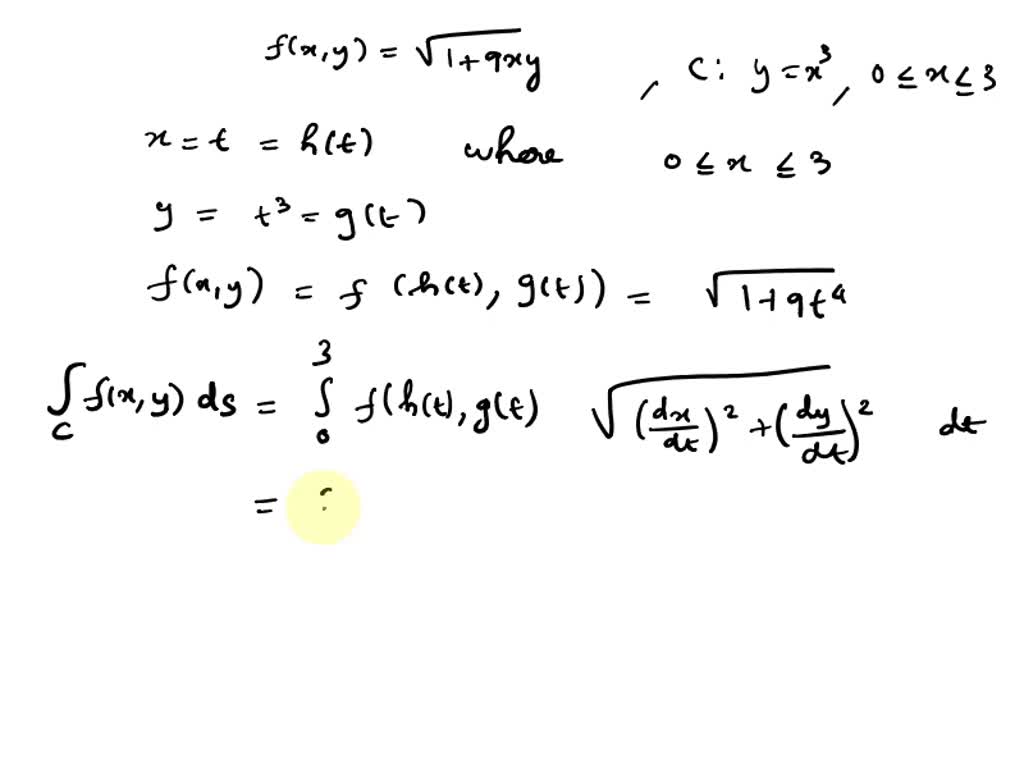 f(x,y) = √1+9xy , C: y = x³, 0 ≤ x ≤ 3
x = t = h(t) where 0 ≤ x ≤ 3
y = t³ = g(t)
f(x,y) = f (h(t), g(t)) = √1+9t⁴
∫_C f(x,y) ds = ∫_0^3 f(h(t), g(t) √(dx/dt)² + (dy/dt)² dt
=